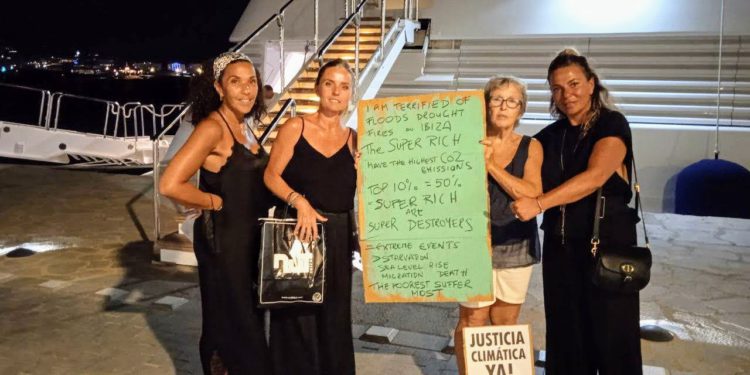 I AM TERRIFIED! OF
FLOODS DROUGHT
FIRES IN IBIZA
THE SUPER RICH
HAVE THE HIGHEST CO2
EMISSIONS
TOP 10% = 50%
= SUPER RICH
ARE
SUPER DESTROYERS
= EXTREME EVENTS
> STARVATION
SEA LEVEL RISE
MIGRATION DEATH
THE POOREST SUFFER
MOST
JUSTICIA
CLIMÁTICA
YA!